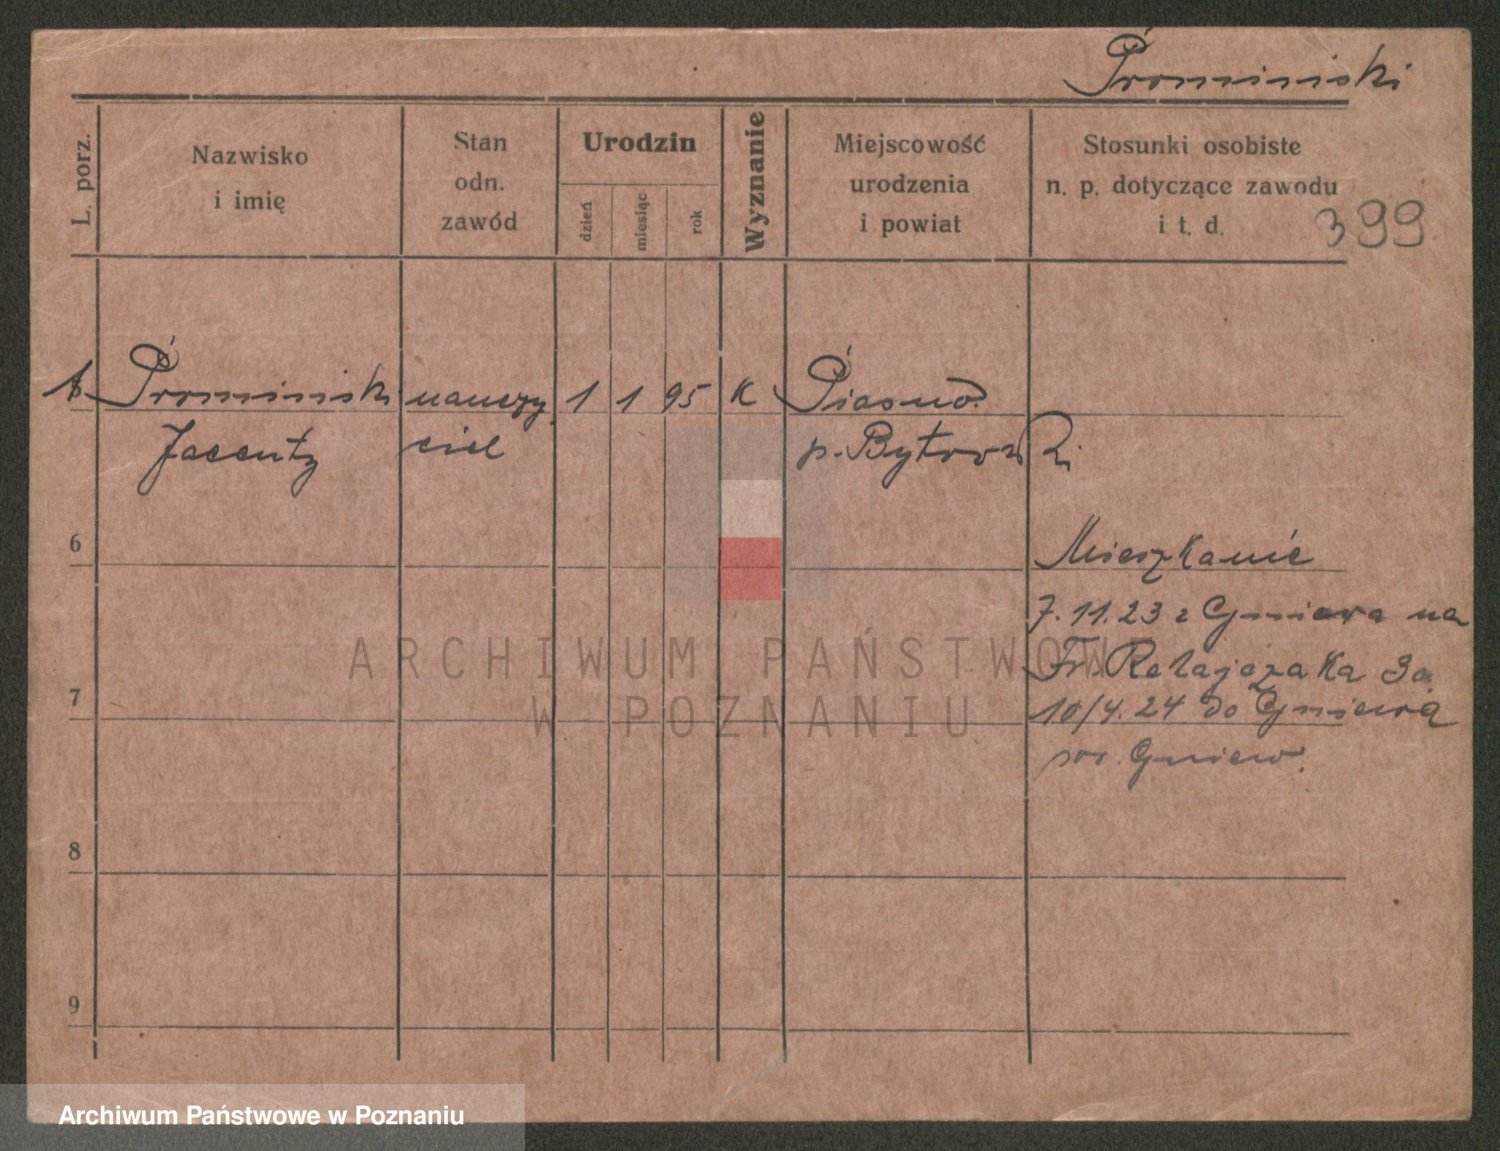 Prominski
L. porz.
Nazwisko
i imię
Stan
odn.
zawód
Urodzin
dzień
miesiąc
rok
Wyznanie
Miejscowość
urodzenia
i powiat
Stosunki osobiste
n. p. dotyczące zawodu
i t. d.
399
1 Prominski nauczy 1 1 95 K Piasno
Jacenty ciel p. Bytowski
6
Mieszkanie
7.11.23 z Gniewa na
Fr. Ratajczaka 3a
7
10/4.24 do Gniewa
pow. Gniew.
8
9
ARCHIWUM PAŃSTWOW
W POZNANIU
Archiwum Państwowe w Poznaniu